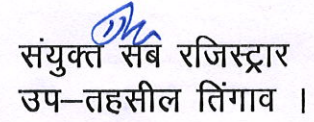 संयुक्त सब रजिस्ट्रार
उप–तहसील तिंगाव ।